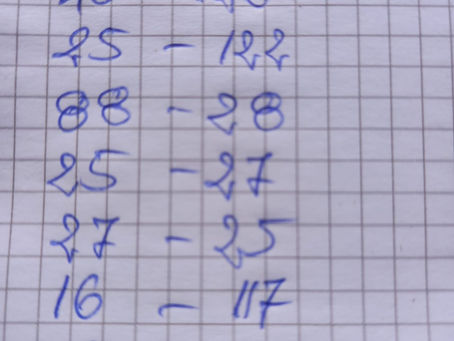 25 - 122
88 - 28
25 - 27
27 - 25
16 - 117